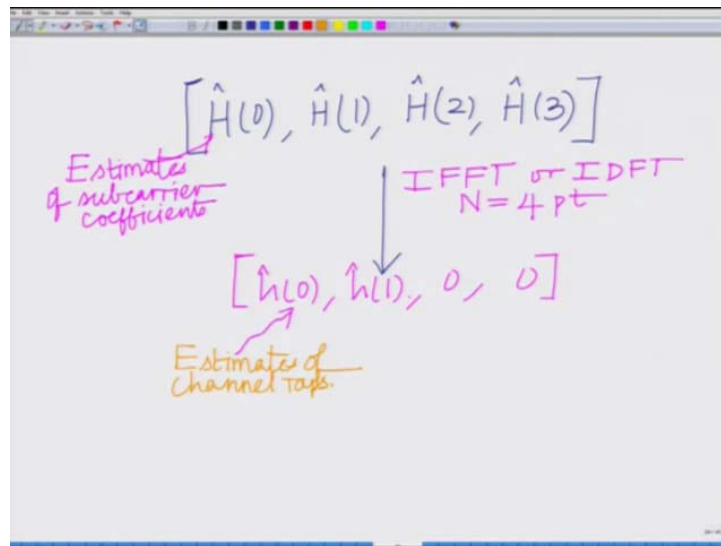 [Ĥ(0), Ĥ(1), Ĥ(2), Ĥ(3)]
Estimates
of subcarrier
coefficients
IFFT or IDFT
N = 4 pt
[ĥ(0), ĥ(1), 0, 0]
Estimates of
Channel Taps.